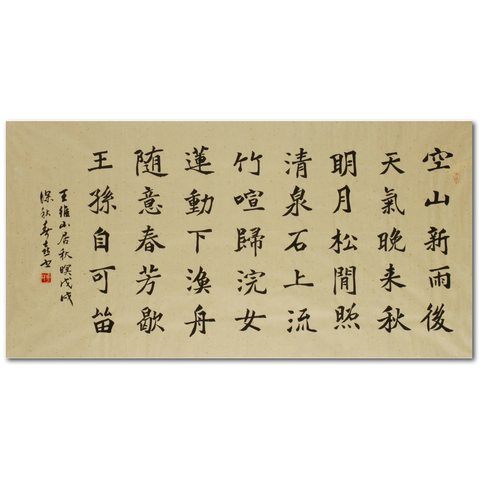 空山新雨後
天氣晚来秋
明月松閒照
清泉石上流
竹喧歸浣女
蓮動下漁舟
随意春芳歇
王孫自可留
王維山居秋暝戊戌
深秋